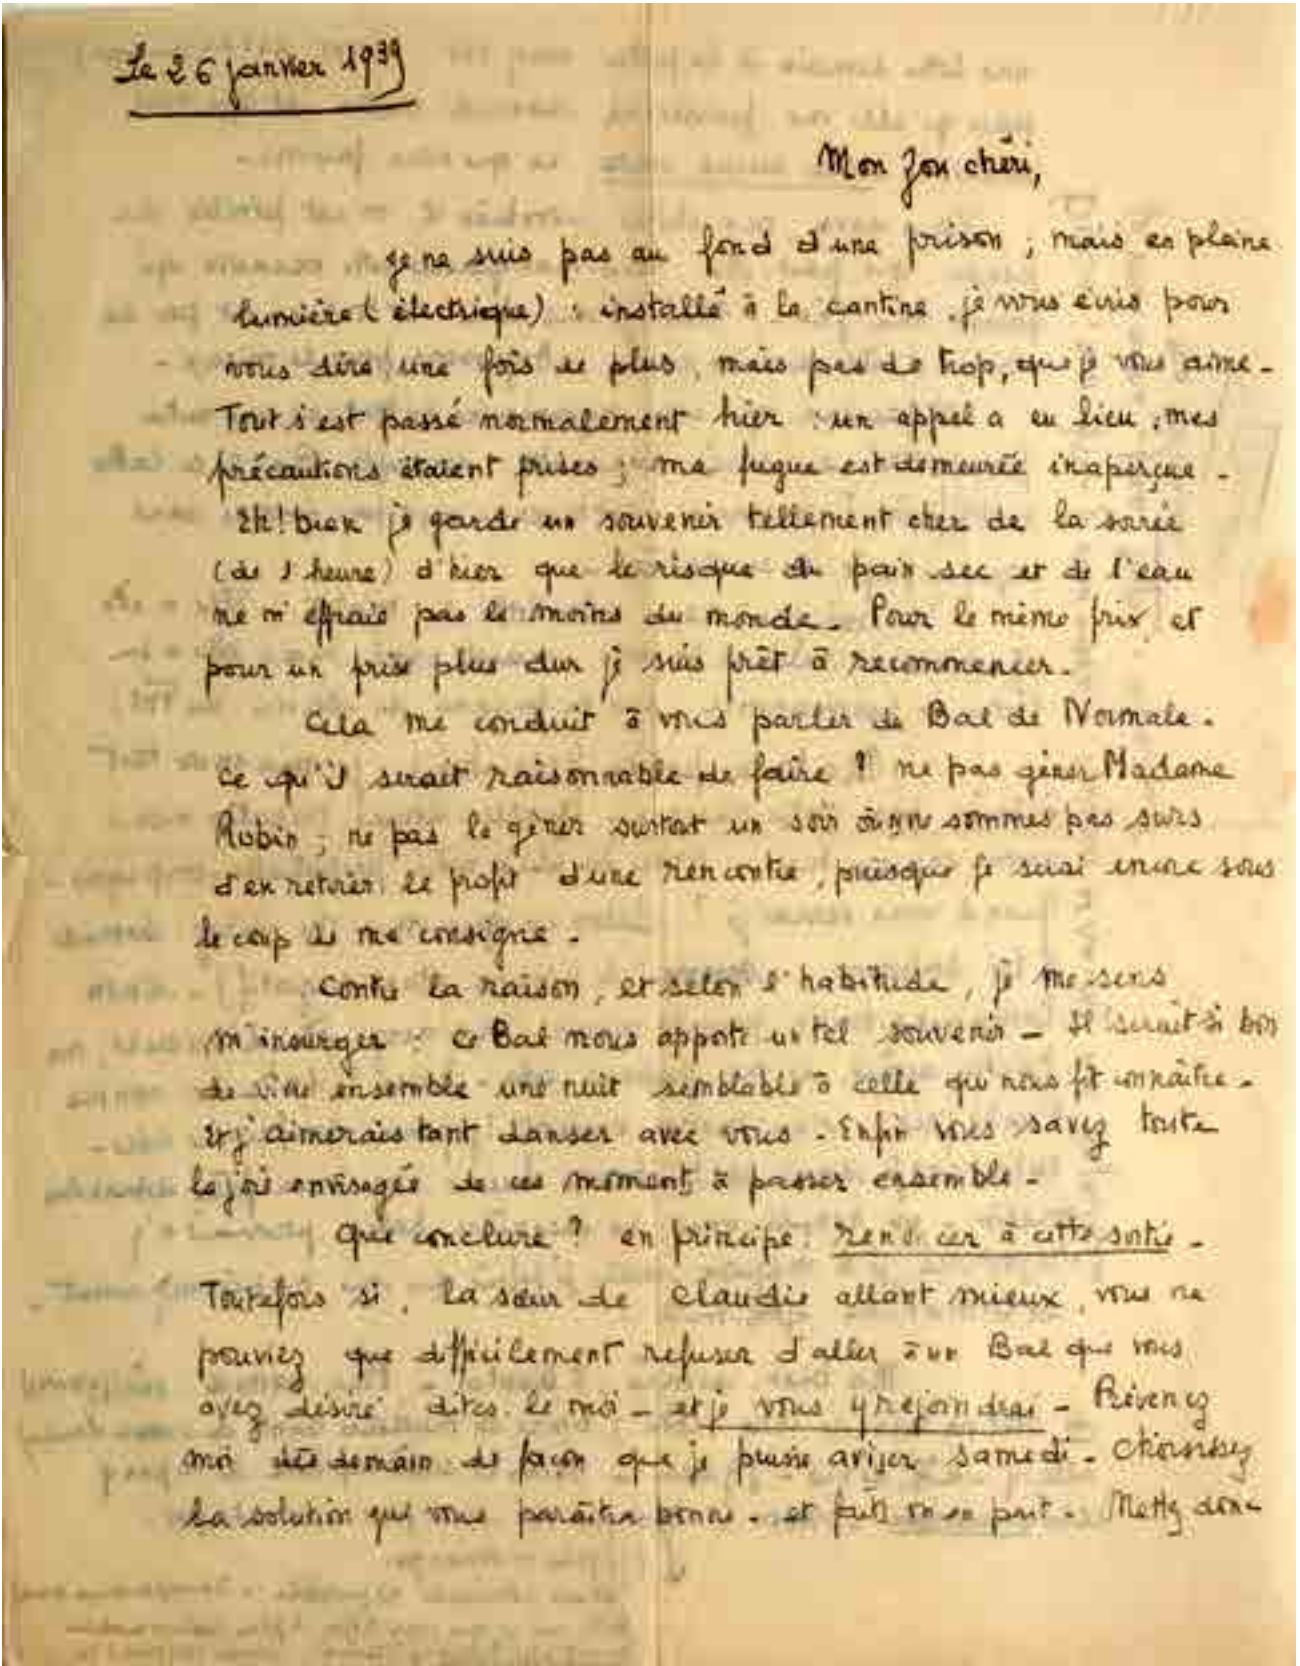 Le 26 janvier 1939
Mon Zou chéri,
je ne suis pas au fond d'une prison ; mais en pleine
lumière (électrique) : installé à la cantine, je vous écris pour
vous dire une fois de plus, mais pas de trop, que je vous aime.
Tout s'est passé normalement hier : un appel a eu lieu ; mes
précautions étaient prises ; ma fugue est demeurée inaperçue.
Eh! bien je garde un souvenir tellement cher de la soirée
(de 1 heure) d'hier que le risque du pain sec et de l'eau
ne m'effraie pas le moins du monde. Pour le même prix, et
pour un prix plus dur je suis prêt à recommencer.
Cela me conduit à vous parler du Bal de Normale.
Ce qu'il serait raisonnable de faire ? ne pas gêner Madame
Rubin ; ne pas la gêner surtout un soir où nous ne sommes pas sûrs
d'en retirer le profit d'une rencontre, puisque je serai encore sous
le coup de ma consigne.
Contre la raison, et selon l'habitude, je me sens
m'insurger : ce Bal nous apporte un tel souvenir - Il serait si bon
de vivre ensemble une nuit semblable à celle qui nous fit connaître.
Et j'aimerais tant danser avec vous. Enfin vous savez toute
la joie envisagée de ces moments à passer ensemble.
Que conclure ? en principe : renoncer à cette sortie.
Toutefois si, la sœur de Claudie allant mieux, vous ne
pouviez que difficilement refuser d'aller à un Bal que vous
avez désiré dites le moi - et je vous y rejoindrai - Prévenez
moi dès demain de façon que je puisse aviser samedi. Choisissez
la solution qui vous paraîtra bonne. et faites m'en part. Mettez donc